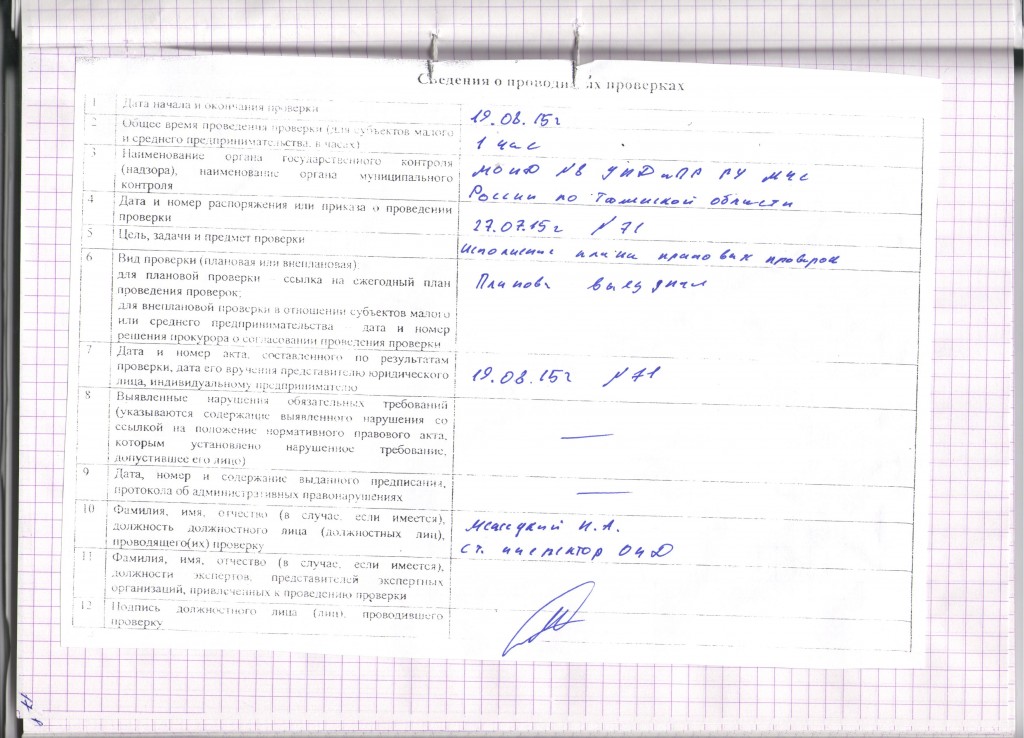 Сведения о проводимых проверках
1 Дата начала и окончания проверки 19.08.15г
2 Общее время проведения проверки (для субъектов малого
и среднего предпринимательства, в часах) 1 час
3 Наименование органа государственного контроля
(надзора), наименование органа муниципального
контроля
УНДиПР ГУ МЧС
России по Тюменской области
4 Дата и номер распоряжения или приказа о проведении
проверки 27.07.15г №71
5 Цель, задачи и предмет проверки Исполнение плана проверок
6 Вид проверки (плановая или внеплановая):
для плановой проверки – ссылка на ежегодный план
проведения проверок;
для внеплановой проверки в отношении субъектов малого
или среднего предпринимательства – дата и номер
решения прокурора о согласовании проведения проверки
выездная
7 Дата и номер акта, составленного по результатам
проверки, дата его вручения представителю юридического
лица, индивидуальному предпринимателю 19.08.15г №71
8 Выявленные нарушения обязательных требований
(указываются содержание выявленного нарушения со
ссылкой на положение нормативного правового акта,
которым установлено нарушенное требование,
допустившее его лицо) —
9 Дата, номер и содержание выданного предписания,
протокола об административных правонарушениях —
10 Фамилия, имя, отчество (в случае, если имеется),
должность должностного лица (должностных лиц),
проводящего(их) проверку
И.А.
ст. инспектор ОНД
11 Фамилия, имя, отчество (в случае, если имеется),
должности экспертов, представителей экспертных
организаций, привлеченных к проведению проверки
12 Подпись должностного лица (лиц), проводившего
проверку